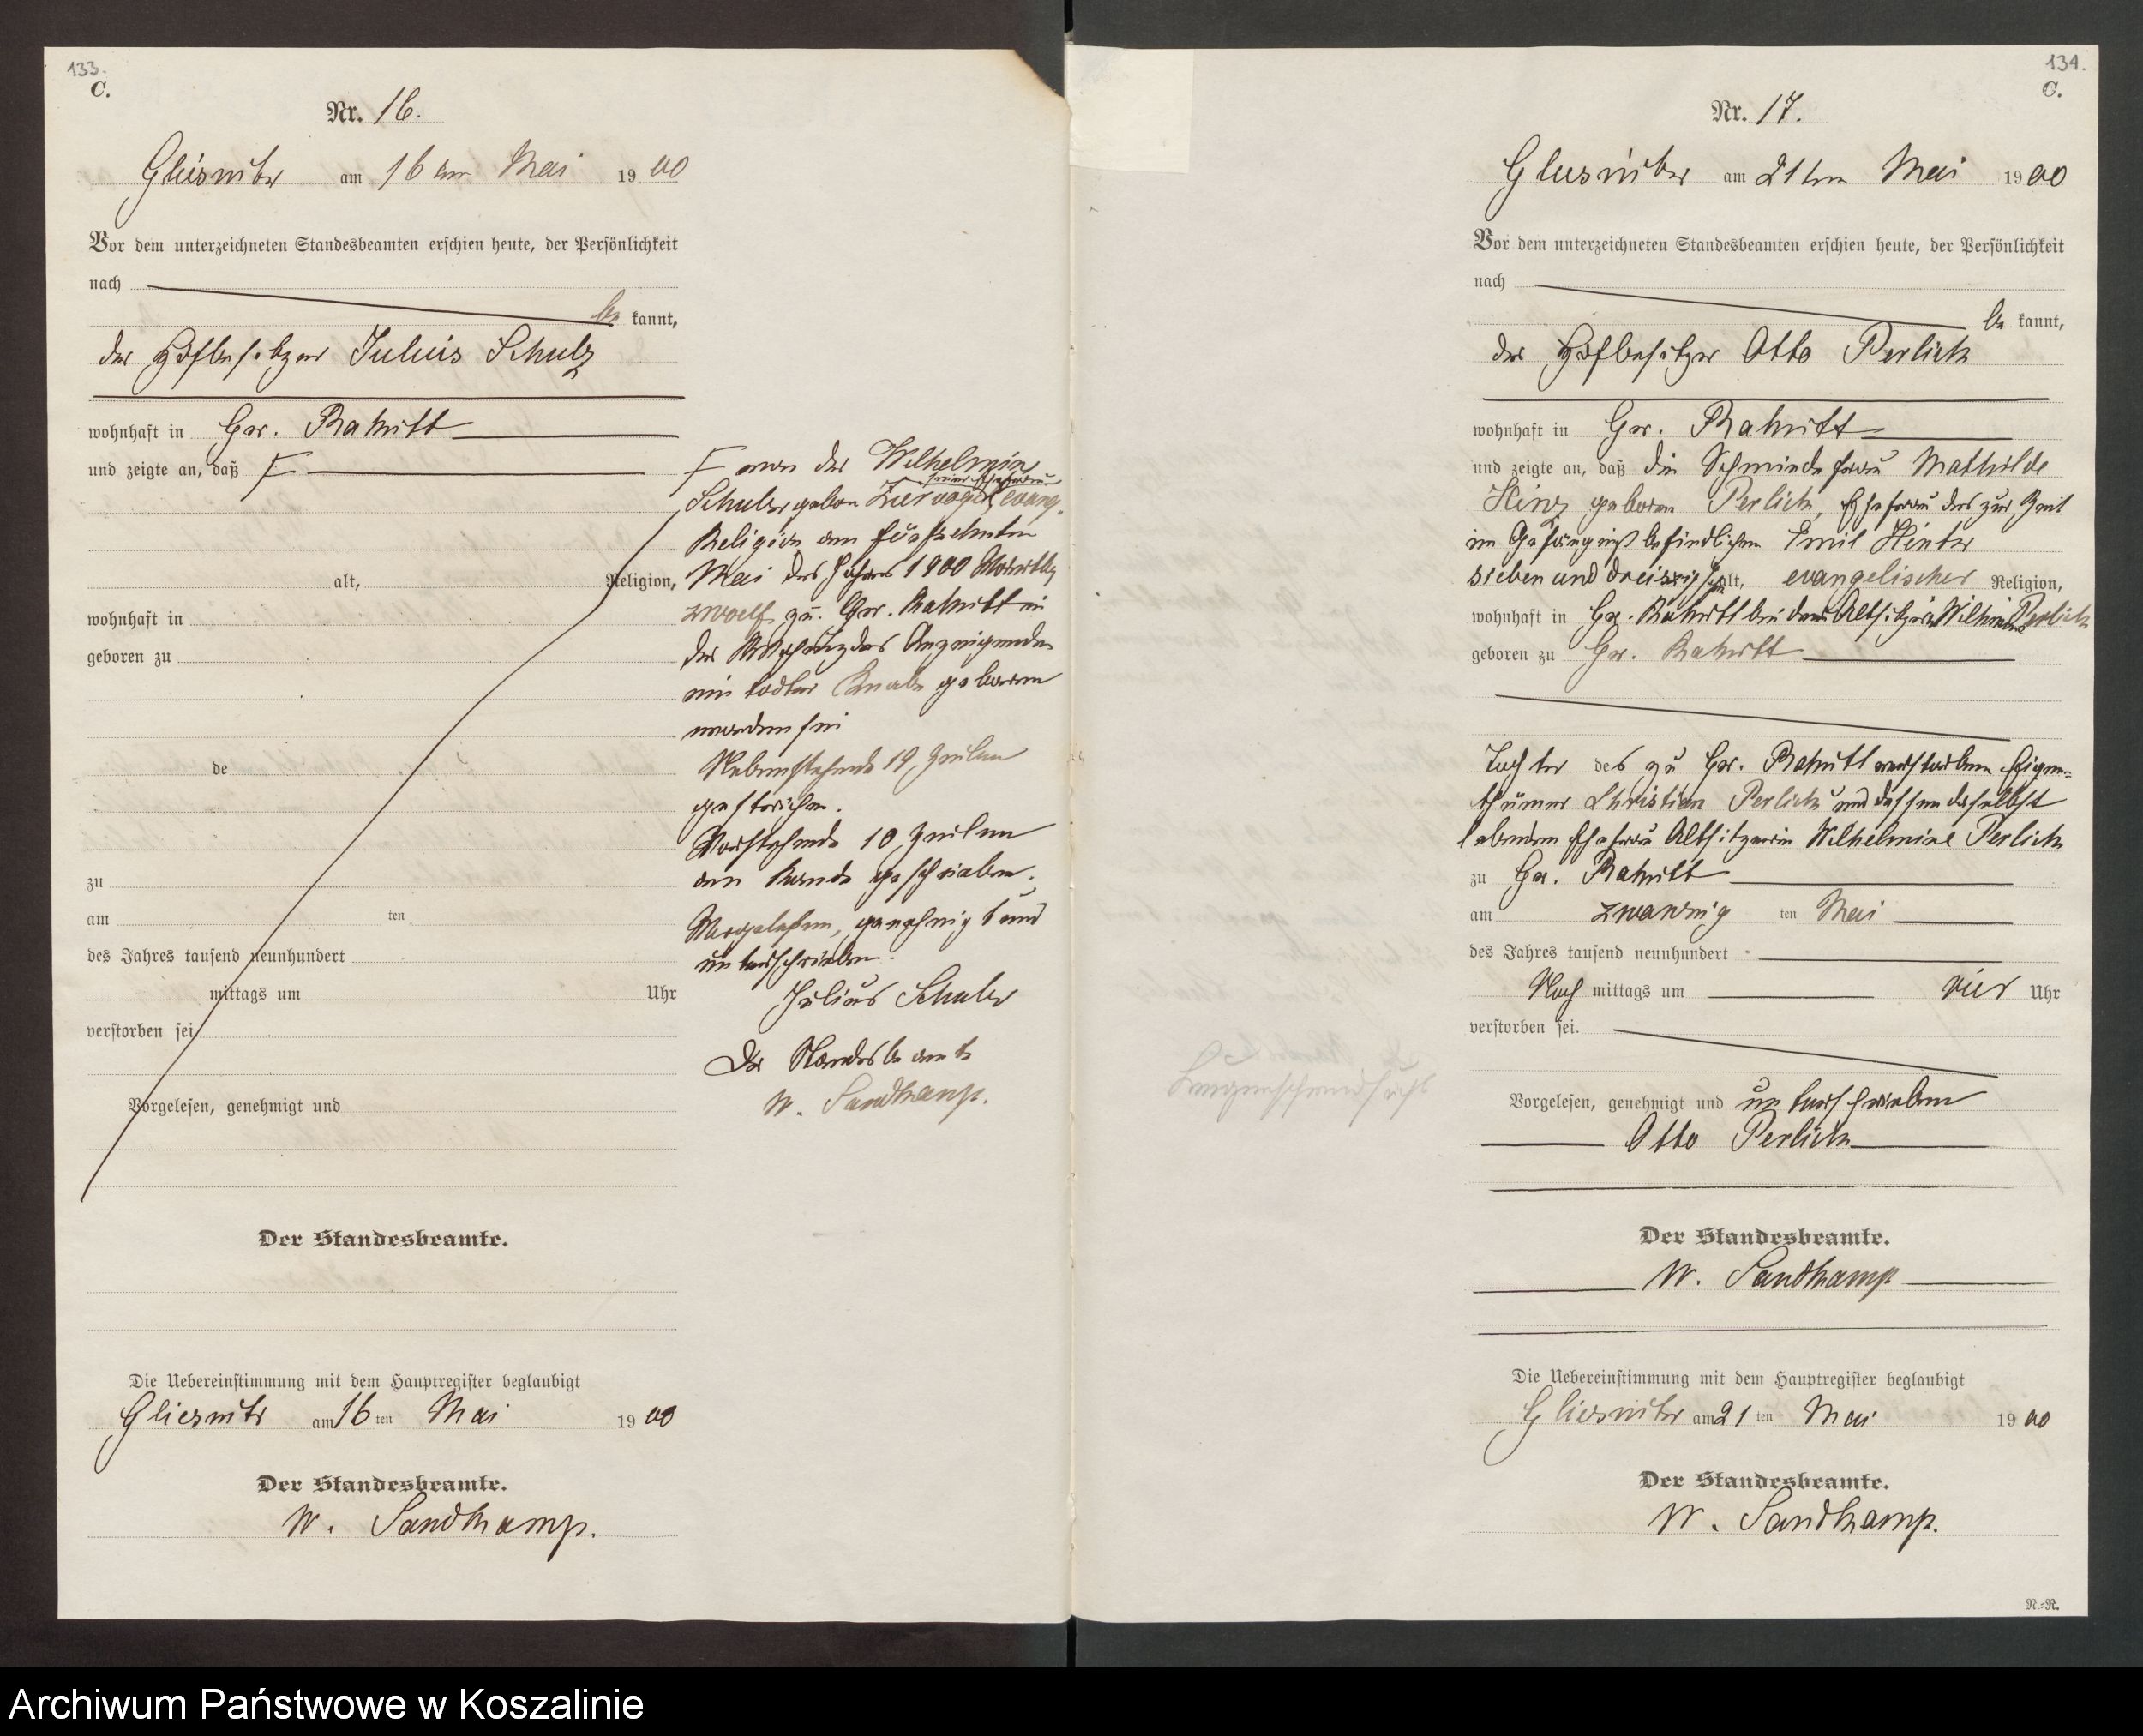 133.
C.
Nr. 16.
Gliesnitz am 16ten Mai 1900
Vor dem unterzeichneten Standesbeamten erschien heute, der Persönlichkeit
nach
be kannt,
der Hofbesitzer Julius Schulz
wohnhaft in Gr. Rakitt
und zeigte an, daß F
alt, Religion,
wohnhaft in
geboren zu
de
zu
am ten
des Jahres tausend neunhundert
mittags um Uhr
verstorben sei
Vorgelesen, genehmigt und
Der Standesbeamte.
Die Uebereinstimmung mit dem Hauptregister beglaubigt
Gliesnitz am 16 ten Mai 1900
Der Standesbeamte.
W. Sandkamp.
F von der Wilhelmine
seiner Ehefrau
Schulz geborn evang.
Religion am fünfzehnten
Mai des Jahres 1900
zwoelf zu Gr. Rakitt in
der des Anzeigenden
ein todter Knabe geboren
worden sei
Nebenstehende 19 Zeilen
gestrichen.
Vorstehende 10 Zeilen
am Rande geschrieben.
Vorgelesen, genehmigt und
unterschrieben.
Julius Schulz
Der Standesbeamte
W. Sandkamp.
134.
C.
Nr. 17.
Gliesnitz am 21ten Mai 1900
Vor dem unterzeichneten Standesbeamten erschien heute, der Persönlichkeit
nach
be kannt,
der Hofbesitzer Otto Perlick
wohnhaft in Gr. Rakitt
und zeigte an, daß die Schmiedefrau Mathilde
Hinz geboren Perlick, Ehefrau des zur Zeit
im Gefängniß befindlichen Emil Hintz
sieben und dreiszig Jahr alt, evangelischer Religion,
wohnhaft in Gr. Rakitt bei der Altsitzerin Wilhelmine Perlick
geboren zu Gr. Rakitt
Tochter des zu Gr. Rakitt verstorbenen Eigen-
thümer Christian Perlick und dessen daselbst
lebenden Ehefrau Altsitzerin Wilhelmine Perlick
zu Gr. Rakitt
am zwanzig ten Mai
des Jahres tausend neunhundert
Nach mittags um vier Uhr
verstorben sei.
Vorgelesen, genehmigt und unterschrieben
Otto Perlick
Der Standesbeamte.
W. Sandkamp
Die Uebereinstimmung mit dem Hauptregister beglaubigt
Gliesnitz am 21 ten Mai 1900
Der Standesbeamte.
W. Sandkamp.
N.=R.
Lungenschwindsucht
Archiwum Państwowe w Koszalinie